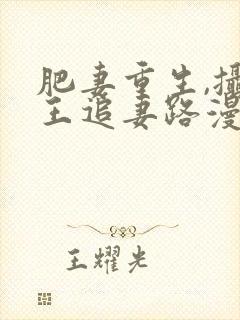 肥妻重生,攝
王追妻路漫
王耀光